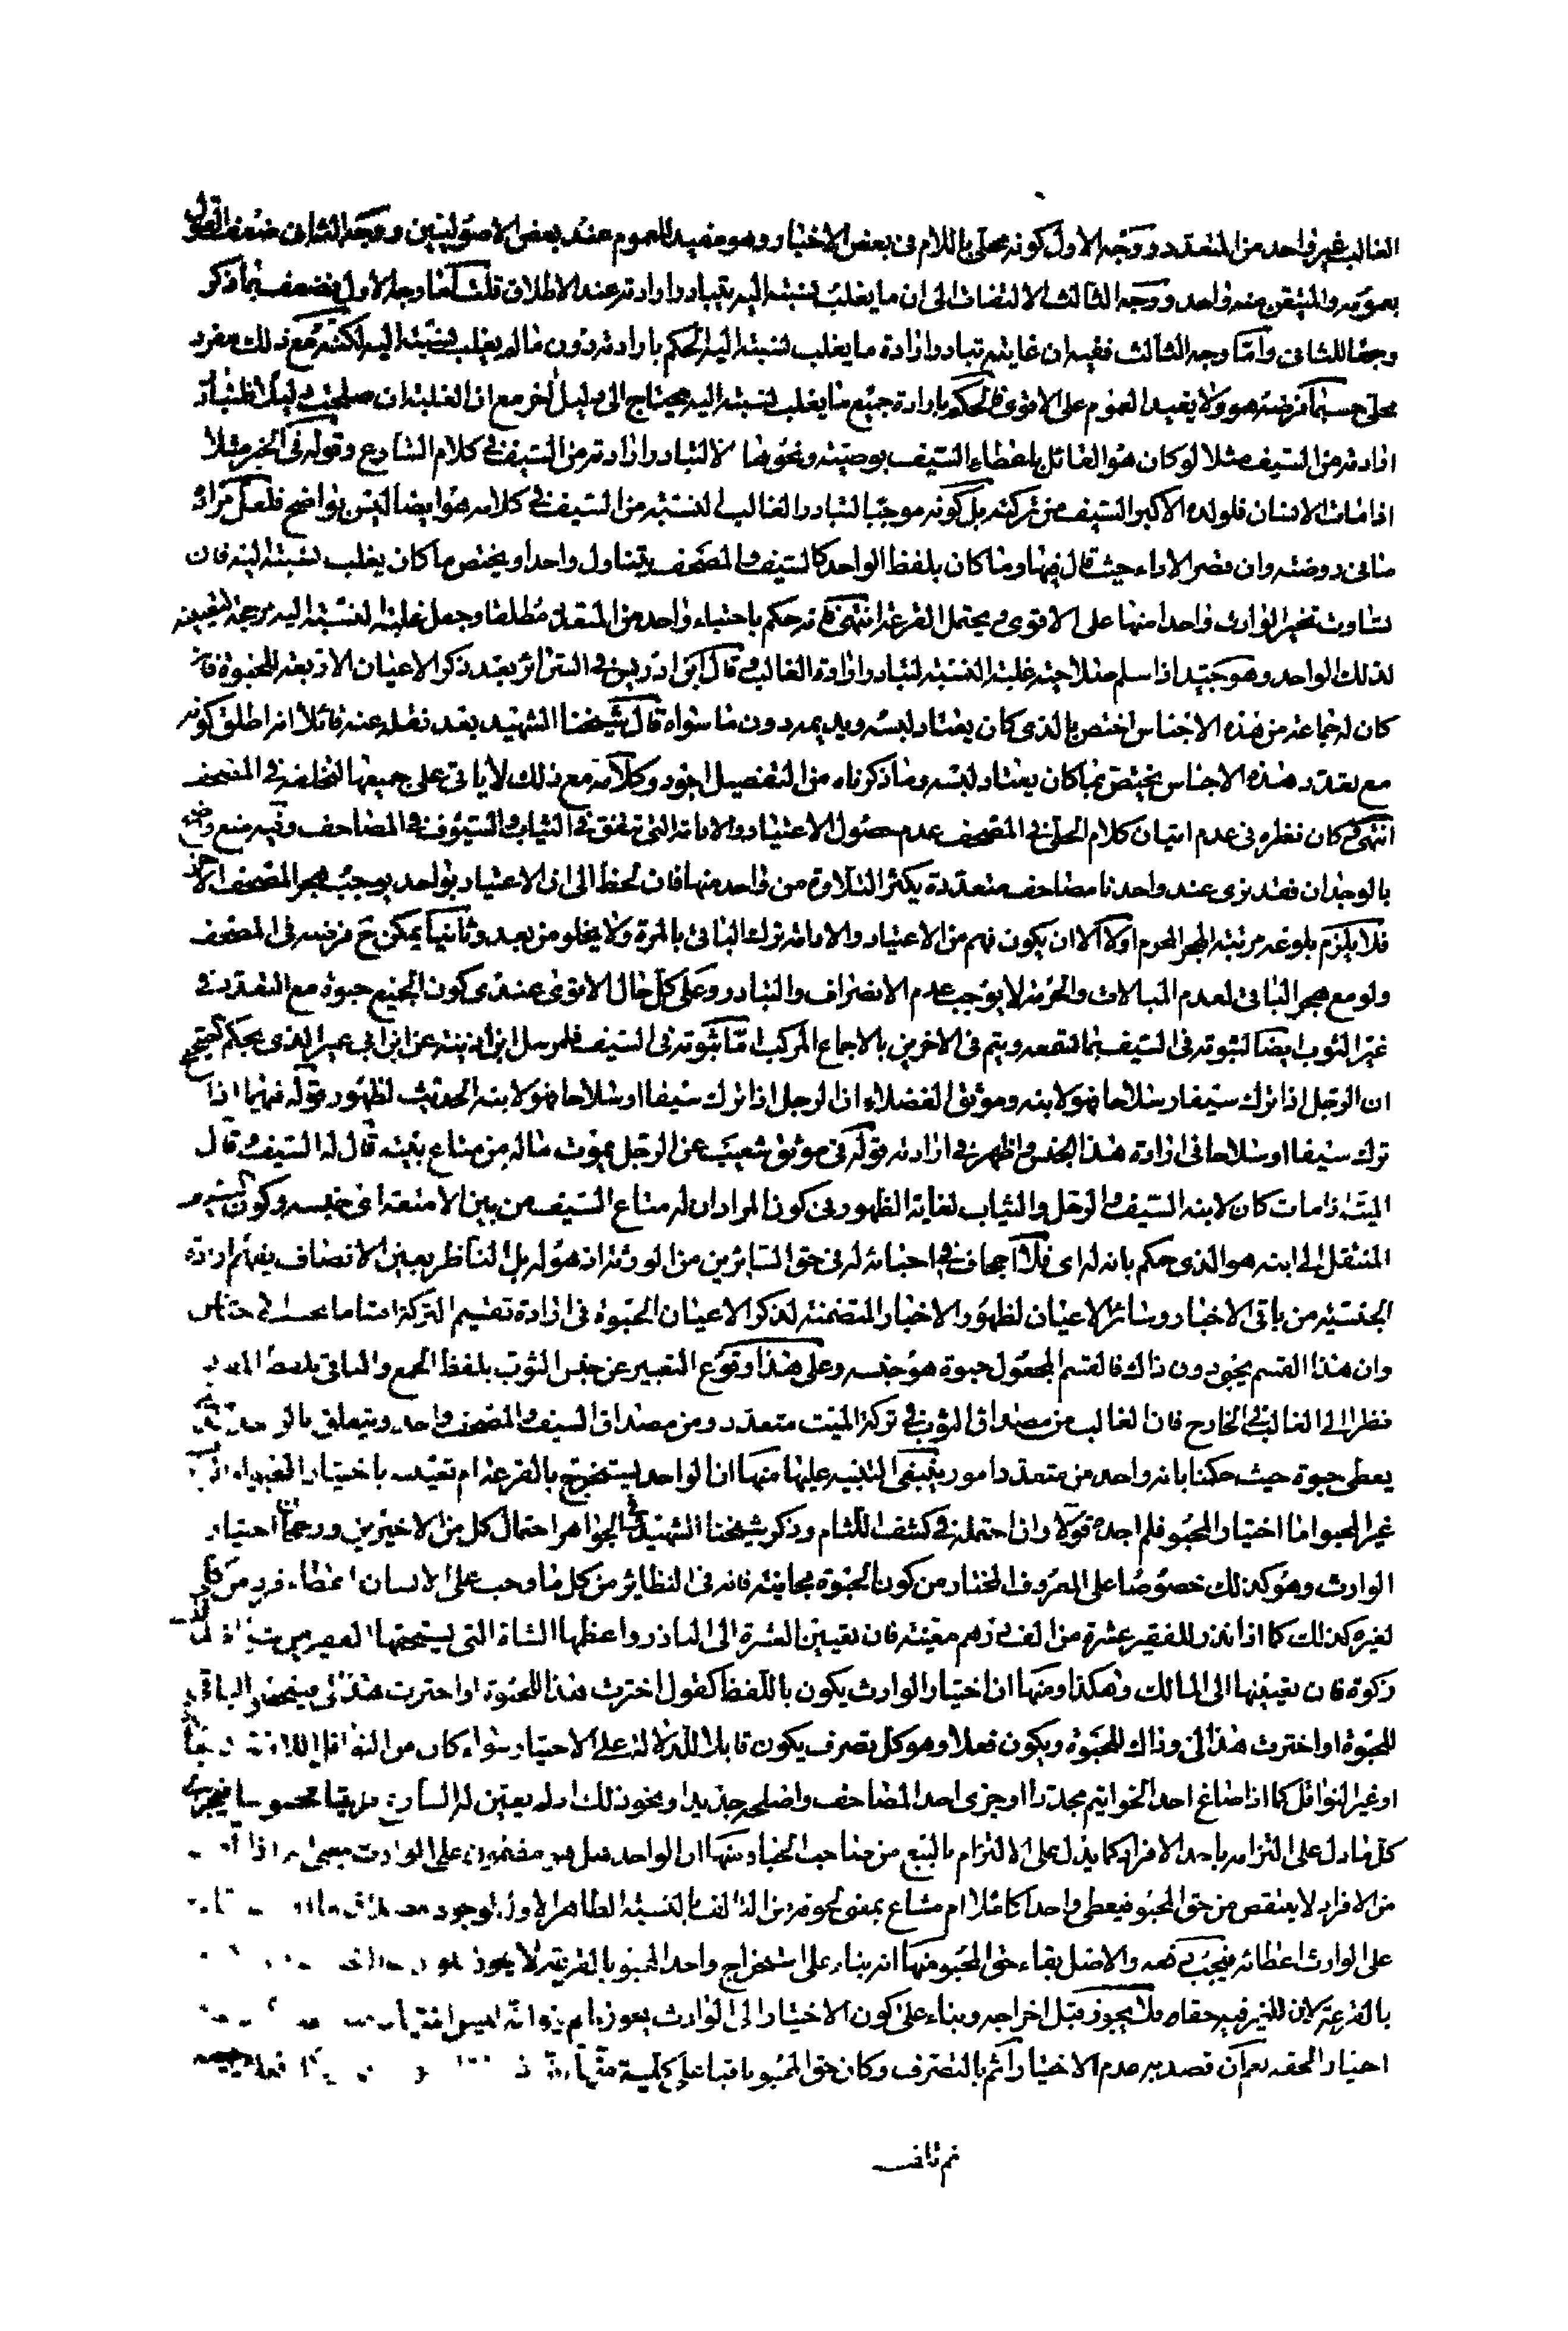 الغالب غير واحد من المتعدد ووجه الاول كونه محلى باللام في بعض الاخبار وهو مفيد للعموم عند بعض الاصوليين ووجه الثاني ضعف القول
بعمومه والمتيقن منه واحد ووجه الثالث الالتفات الى ان ما يغلب نسبته اليه يتبادر ارادته عند الاطلاق قلت اما وجه الاول فضعف بما ذكر
وجها للثاني واما وجه الثالث ففيه ان غايته تبادر ارادة ما يغلب نسبته اليه الحكم بارادته دون ما لم يغلب نسبته اليه لكنه مع ذلك مفرد
محلى حسبما فرضه هو ولا يفيد العموم على الاقوى فالحكم بارادة جميع ما يغلب نسبته اليه يحتاج الى دليل اخر مع ان الغلبة ان صلحت دليلا لتبادر
ارادته من السيف مثلا لو كان هو القائل باعطاء السيف بوصيته ونحوها لا لتبادر ارادته من السيف في كلام الشارع وقوله في الخبر مثلا
اذا مات الانسان فلولده الاكبر السيف من تركته بل كونه موجبا لتبادر الغالب لنسبته من السيف في كلامه هو ايضا ليس بواضح فلعل مراده
ما في روضته وان قصر الاداء حيث قال فيها وما كان بلفظ الواحد كالسيف والمصحف يتناول واحدا ويختص ما كان يغلب نسبته اليه فان
تساوت تخير الوارث واحدا منها على الاقوى ويحتمل القرعة انتهى فانه حكم باحتباء واحد من المتعدد مطلقا وجعل غلبة النسبة اليه مرجحة لتعيينه
لذلك الواحد وهو جيد اذا سلم صلاحية غلبة النسبة لتبادر ارادة الغالب وقال ابن ادريس في السرائر بعد ذكر الاعيان الاربعة للحبوة فان
كان له جماعة من هذه الاجناس اختص بالذي كان يعتاد لبسه ويديمه دون ما سواه قال شيخنا الشهيد بعد نقله عنه قائلا انه اطلق كونه
مع تعدد هذه الاجناس يختص بما كان يعتاد لبسه وما ذكرناه من التفصيل اجود وكلامه مع ذلك لا ياتي على جميعها لتخلفه في المصحف
انتهى وكان نظره في عدم اتيان كلام الحلي في المصحف عدم حصول الاعتياد والادامة التي تتفق في الثياب والسيوف في المصاحف وفيه منع واضح
بالوجدان فقد نرى عند واحدنا مصاحف متعددة يكثر التلاوة من واحد منها فان لحظ الى ان الاعتياد بواحد يوجب هجر المصحف الاخر
فلا يلزم بلوغه مرتبة الهجر المحرم اولا الا ان يكون فهم من الاعتياد والادامة ترك الباقي بالمرة ولا يخلو من بعد وثانيا يمكن ح فرضه في المصحف
ولو مع هجر الباقي لعدم المبالات والحرمة لا يوجب عدم الانصراف والتبادر وعلى كل حال الاقوى عندي كون الجميع حبوة مع التعدد في
غير الثوب ايضا لثبوته في السيف بما تقف ويتم في الاخرين بالاجماع المركب اما ثبوته في السيف فلمرسل ابن اذينه عن ابن ابي عمير الذي يحكم
ان الرجل اذا ترك سيفا وسلاحا فهو لابنه وموثق الفضلاء ان الرجل اذا ترك سيفا او سلاحا فهو لابنه الحديث لظهور قوله فيهما اذا
ترك سيفا او سلاحا في ارادة هذا الجنس واظهر في ارادته قوله في موثق شعيب عن الرجل يموت ماله من متاع بيته قال له السيف وقال
الميت اذا مات كان لابنه السيف والرحل والثياب لغاية الظهور في كون المراد ان له متاع السيف من بين الامتعة اي جنسه وكون
المنتقل الى ابنه هو الذي حكم بانه له اي فلا اجحاف في احبائه له في حق السائرين من الورثة اذ هو له بل الناظر بعين الانصاف يفهم ارادة
الجنسية من باقي الاخبار وسائر الاعيان لظهور الاخبار المتضمنة لذكر الاعيان الحبوة في ارادة تقسيم التركة
وان هذا القسم يحبى دون ذاك فالقسم المجعول حبوة هو جنسه وعلى هذا وقوع التعبير عن جنس الثوب بلفظ الجمع والباقي بلفظ
نظرا الى الغالب في الخارج فان الغالب من مصداق الثوب في تركة الميت متعدد ومن مصداق السيف والمصحف واحد ويتعلق
يعطى حبوة حيث حكمنا بانه واحد من متعدد امور ينبغي التنبيه عليها منها ان الواحد يستخرج بالقرعة ام تعينه باختيار
غير المحبو اما اختيار المحبو فلم اجده قولا وان احتمله في كشف اللثام وذكر شيخنا الشهيد والجواهر احتمال كل من الاخيرين ورجحا اختيار
الوارث وهو كذلك خصوصا على المعروف المختار من كون الحبوة مجانية فانه في النظائر من كل ما وجب على الانسان اعطاء فرد من
لغيره كذلك كما اذا نذر للفقير عشرة من الف درهم معينة فان تعيين العشرة الى الناذر واعظمها الشاة التي يستحقها الفقير من
زكوة فان تعيينها الى المالك وهكذا ومنها ان اختيار الوارث يكون باللفظ كقول اخترت هذا للحبوة او اخترت هذا لي فيتمحض الباقي
للحبوة او اخترت هذا لي وذاك للحبوة ويكون فعلا وهو كل تصرف يكون قابلا للدلالة على الاختيار سواء كان من النواقل اللازمة
او غير النواقل كما اذا صاغ احد الخواتيم مجددا او جزى احد المصاحف واصلحه جديدا ونحو ذلك
كل ما دل على التزامه باحد الافراد كما يدل على الالتزام بالبيع من صاحب الخيار ومنها ان الواحد هل هو مضمون على الوارث
من الافراد لا ينقص من حق المحبو فيعطى واحدا كاملا ام مشاع بمعنى لحوقه من التالف بالنسبة الظاهر الاول لوجود
على الوارث اعطائه فيجب دفعه والاصل بقاء حق المحبو منها انه بناء على استخراج واحد المحبو بالقرعة لا يجوز
بالقرعة لان للغير فيه حقا فلا يجوز قبل اخراجه وبناء على كون الاختيار الى الوارث يجوز
اختيار الحقه نعم ان قصد به عدم الاختيار اثم بالتصرف وكان حق المحبو باقيا على كلية